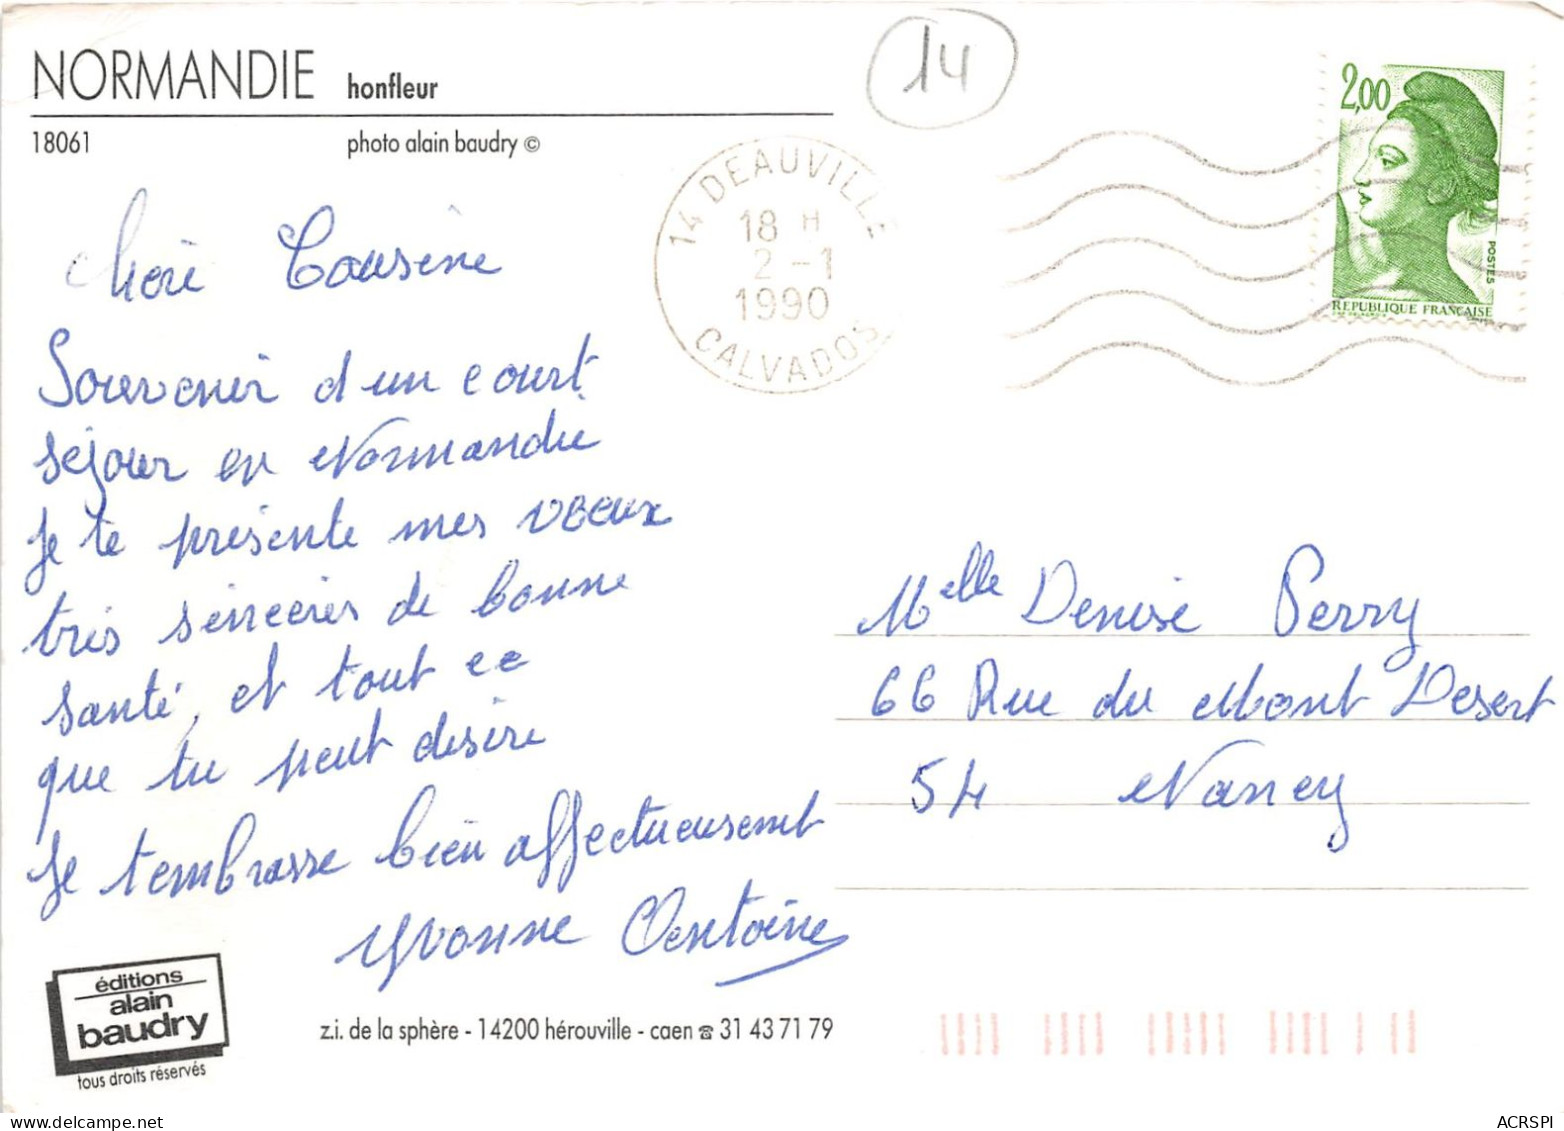 NORMANDIE honfleur
18061 photo alain baudry ©
14
14 DEAUVILLE
18 H
2 -1
1990
CALVADOS
2,00
POSTES
REPUBLIQUE FRANÇAISE
chère Cousine
Souvenir d'un court
séjour en Normandie
Je te présente mes voeux
très sincères de bonne
santé, et tout ce
que tu peut désire
Je t'embrasse bien affectueusement
Yvonne Antoine
Melle Denise Perry
66 Rue du Mont Desert
54 Nancy
éditions
alain
baudry
tous droits réservés
z.i. de la sphère - 14200 hérouville - caen ☎ 31 43 71 79
www.delcampe.net
ACRSPI